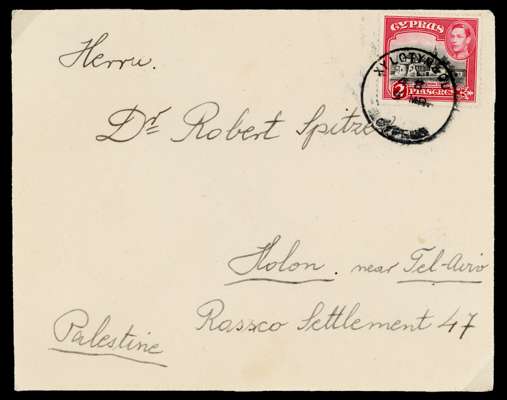 CYPRUS
2 PIASTRES
CYPRUS
Herrn.
Dr Robert Spitzer
Holon. near Tel-Aviv
Rassco Settlement 47
Palestine